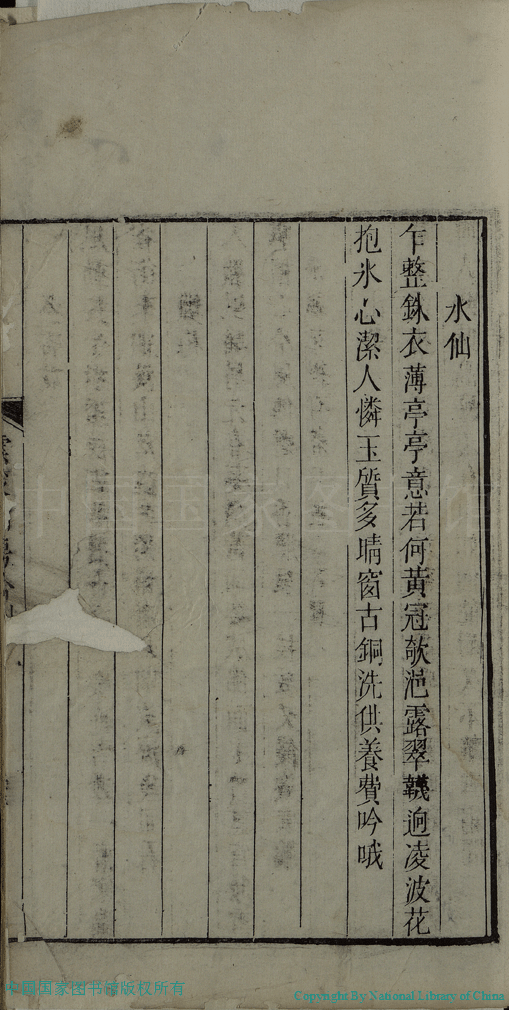 水仙
乍整銖衣薄亭亭意若何黄冠欹浥露翠韈逈凌波花
抱氷心潔人憐玉質多晴窗古銅洗供養費吟哦
中国国家图书馆版权所有
Copyright By National Library of China